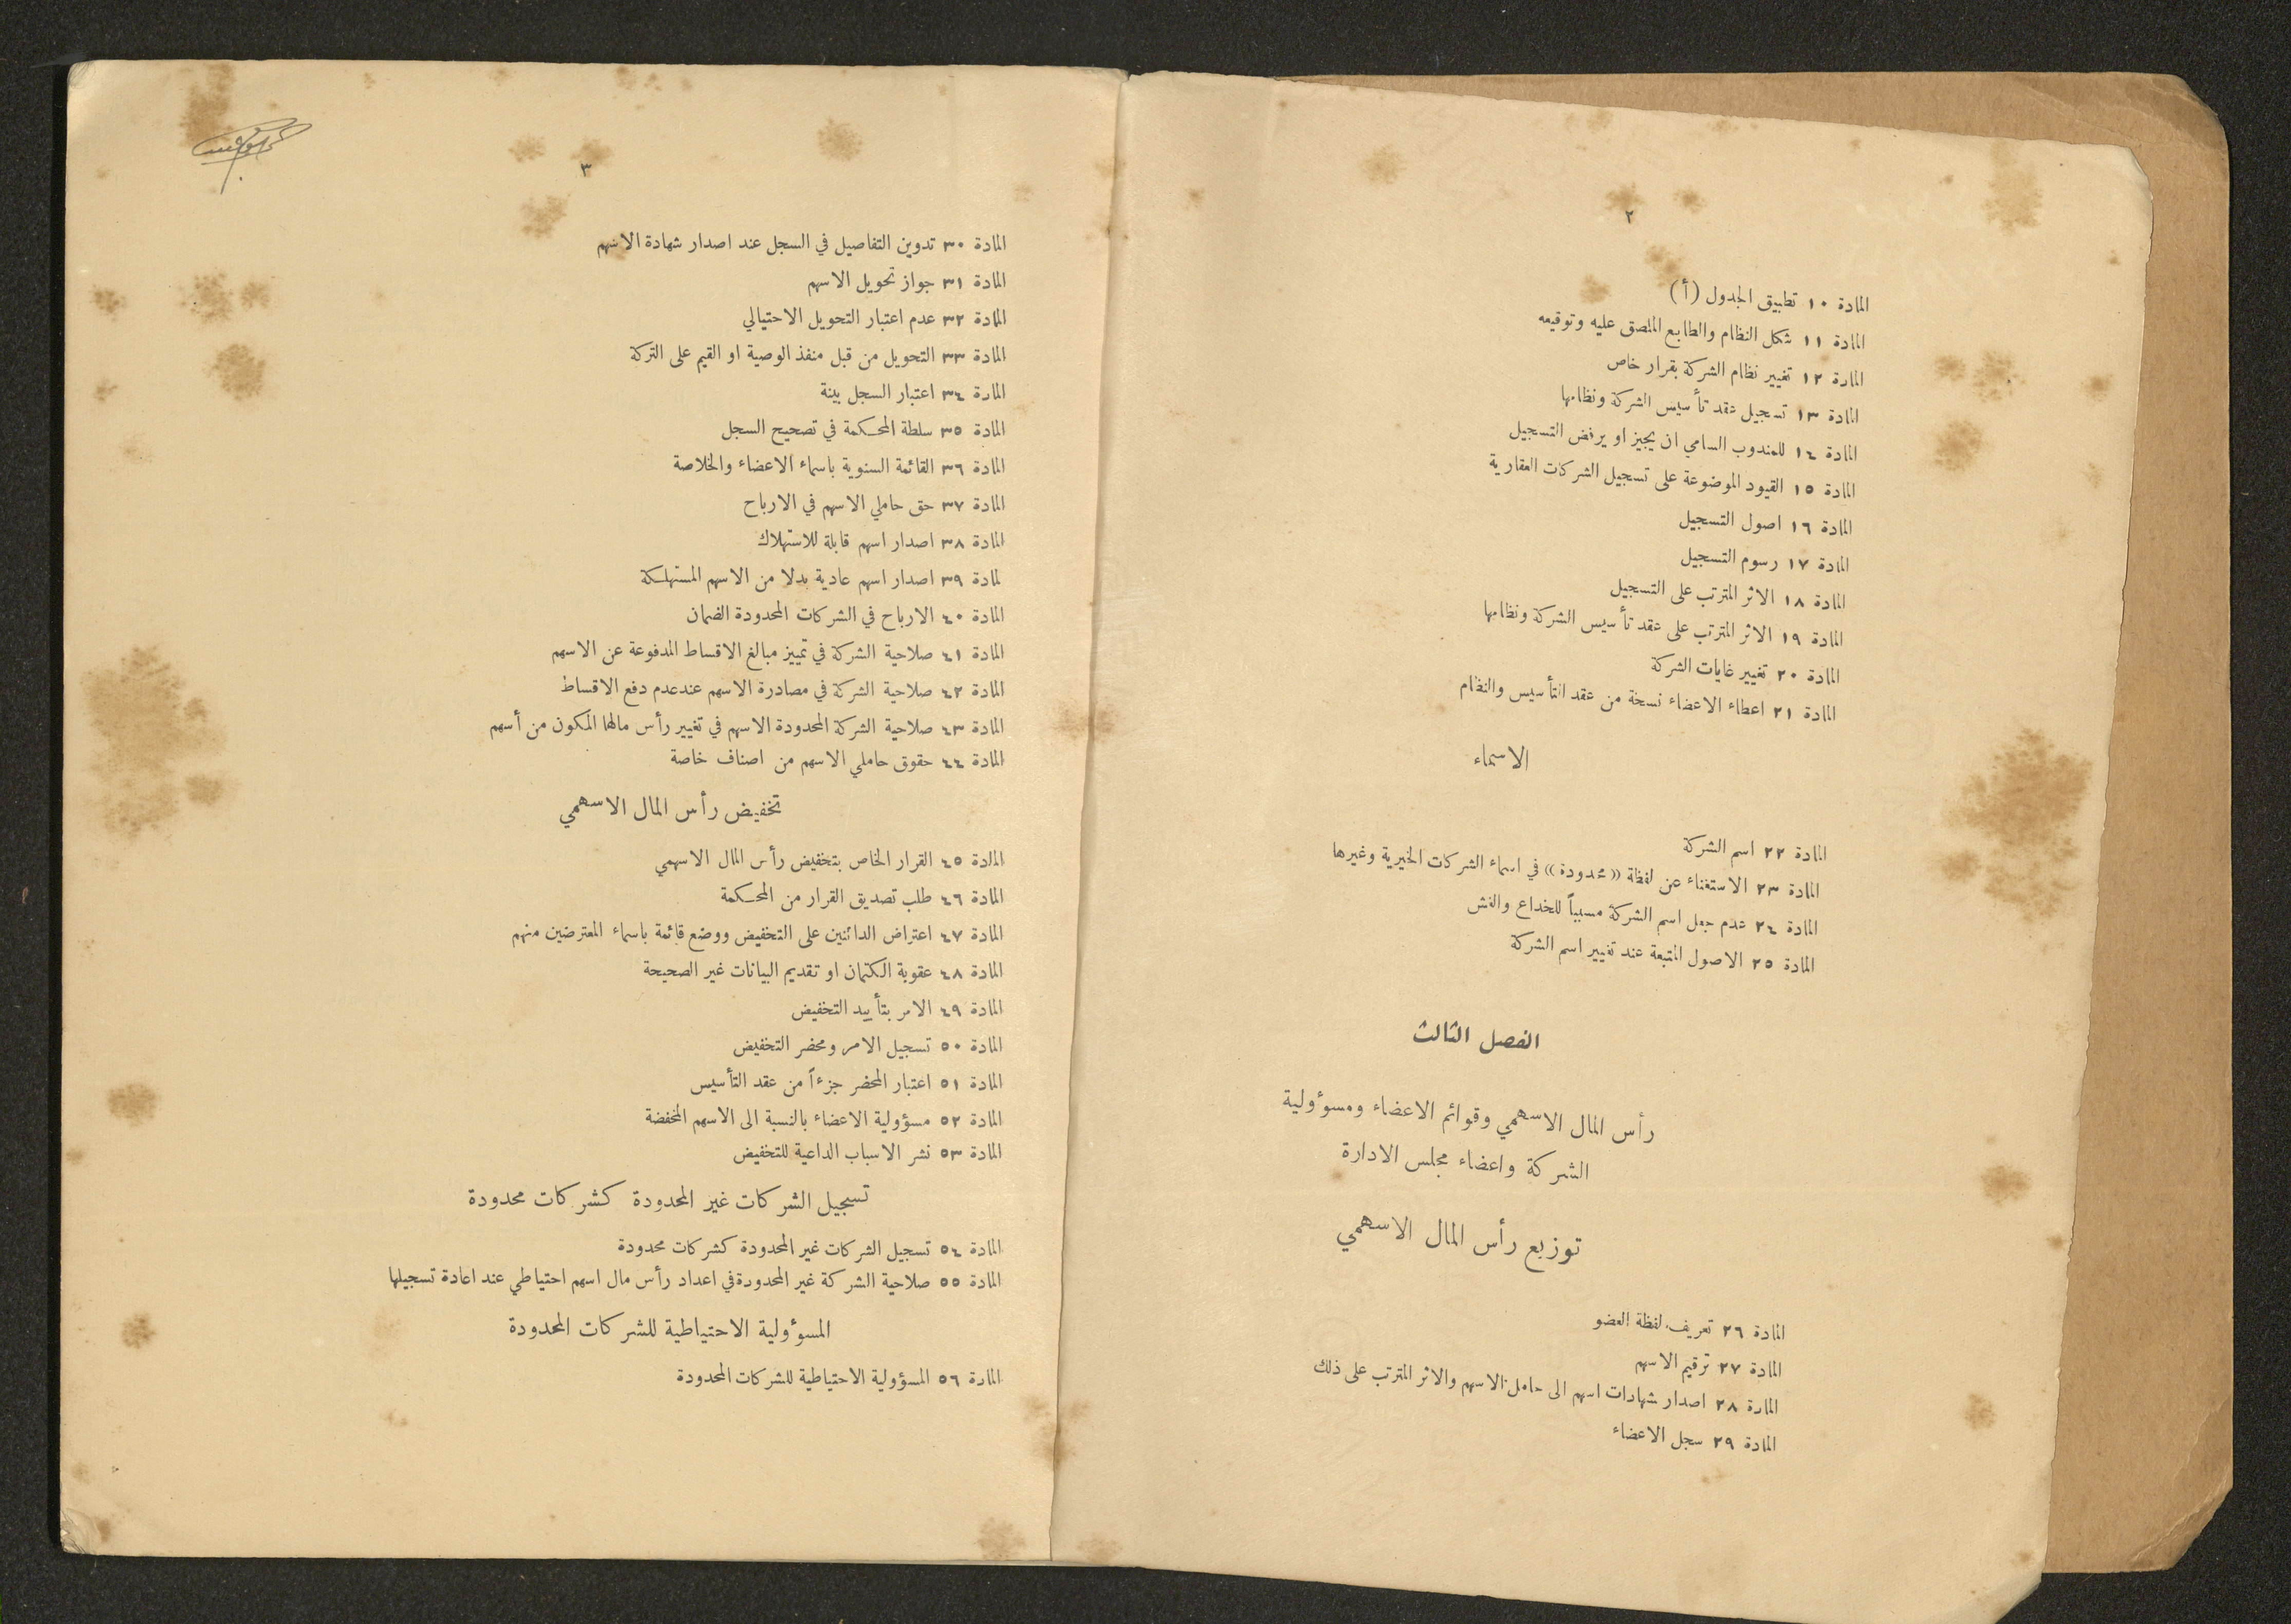 ٢
المادة ١٠ تطبيق الجدول (أ)
المادة ١١ شكل النظام والطابع الملصق عليه وتوقيعه
المادة ١٢ تغيير نظام الشركة بقرار خاص
المادة ١٣ تسجيل عقد تأسيس الشركة ونظامها
المادة ١٤ للمندوب السامي ان يجيز او يرفض التسجيل
المادة ١٥ القيود الموضوعة على تسجيل الشركات العقارية
المادة ١٦ اصول التسجيل
المادة ١٧ رسوم التسجيل
المادة ١٨ الاثر المترتب على التسجيل
المادة ١٩ الاثر المترتب على عقد تأسيس الشركة ونظامها
المادة ٢٠ تغيير غايات الشركة
المادة ٢١ اعطاء الاعضاء نسخة من عقد التأسيس والنظام
الاسماء
المادة ٢٢ اسم الشركة
المادة ٢٣ الاستغناء عن لفظة «محدودة» في اسماء الشركات الخيرية وغيرها
المادة ٢٤ عدم جعل اسم الشركة مسبباً للخداع والغش
المادة ٢٥ الاصول المتبعة عند تغيير اسم الشركة
الفصل الثالث
رأس المال الاسهمي وقوائم الاعضاء ومسوءولية
الشركة واعضاء مجلس الادارة
توزيع رأس المال الاسهمي
المادة ٢٦ تعريف لفظة العضو
المادة ٢٧ ترقيم الاسهم
المادة ٢٨ اصدار شهادات اسهم الى حامل الاسهم والاثر المترتب على ذلك
المادة ٢٩ سجل الاعضاء
٣
المادة ٣٠ تدوين التفاصيل في السجل عند اصدار شهادة الاسهم
المادة ٣١ جواز تحويل الاسهم
المادة ٣٢ عدم اعتبار التحويل الاحتيالي
المادة ٣٣ التحويل من قبل منفذ الوصية او القيم على التركة
المادة ٣٤ اعتبار السجل بينة
المادة ٣٥ سلطة المحكمة في تصحيح السجل
المادة ٣٦ القائمة السنوية باسماء الاعضاء والخلاصة
المادة ٣٧ حق حاملي الاسهم في الارباح
المادة ٣٨ اصدار اسهم قابلة للاستهلاك
لمادة ٣٩ اصدار اسهم عادية بدلا من الاسهم المستهلكة
المادة ٤٠ الارباح في الشركات المحدودة الضمان
المادة ٤١ صلاحية الشركة في تمييز مبالغ الاقساط المدفوعة عن الاسهم
المادة ٤٢ صلاحية الشركة في مصادرة الاسهم عندعدم دفع الاقساط
المادة ٤٣ صلاحية الشركة المحدودة الاسهم في تغيير رأس مالها المكون من أسهم
المادة ٤٤ حقوق حاملي الاسهم من اصناف خاصة
تخفيض رأس المال الاسهمي
المادة ٤٥ القرار الخاص بتخفيض رأس المال الاسهمي
المادة ٤٦ طلب تصديق القرار من المحكمة
المادة ٤٧ اعتراض الدائنين على التخفيض ووضع قائمة باسماء المعترضين منهم
المادة ٤٨ عقوبة الكتمان او تقديم البيانات غير الصحيحة
المادة ٤٩ الامر بتأييد التخفيض
المادة ٥٠ تسجيل الامر ومحضر التخفيض
المادة ٥١ اعتبار المحضر جزءاً من عقد التأسيس
المادة ٥٢ مسؤولية الاعضاء بالنسبة الى الاسهم المخفضة
المادة ٥٣ نشر الاسباب الداعية للتخفيض
تسجيل الشركات غير المحدودة كشركات محدودة
المادة ٥٤ تسجيل الشركات غير المحدودة كشركات محدودة
المادة ٥٥ صلاحية الشركة غير المحدودةفي اعداد رأس مال اسهم احتياطي عند اعادة تسجيلها
المسوءولية الاحتياطية للشركات المحدودة
المادة ٥٦ المسؤولية الاحتياطية للشركات المحدودة